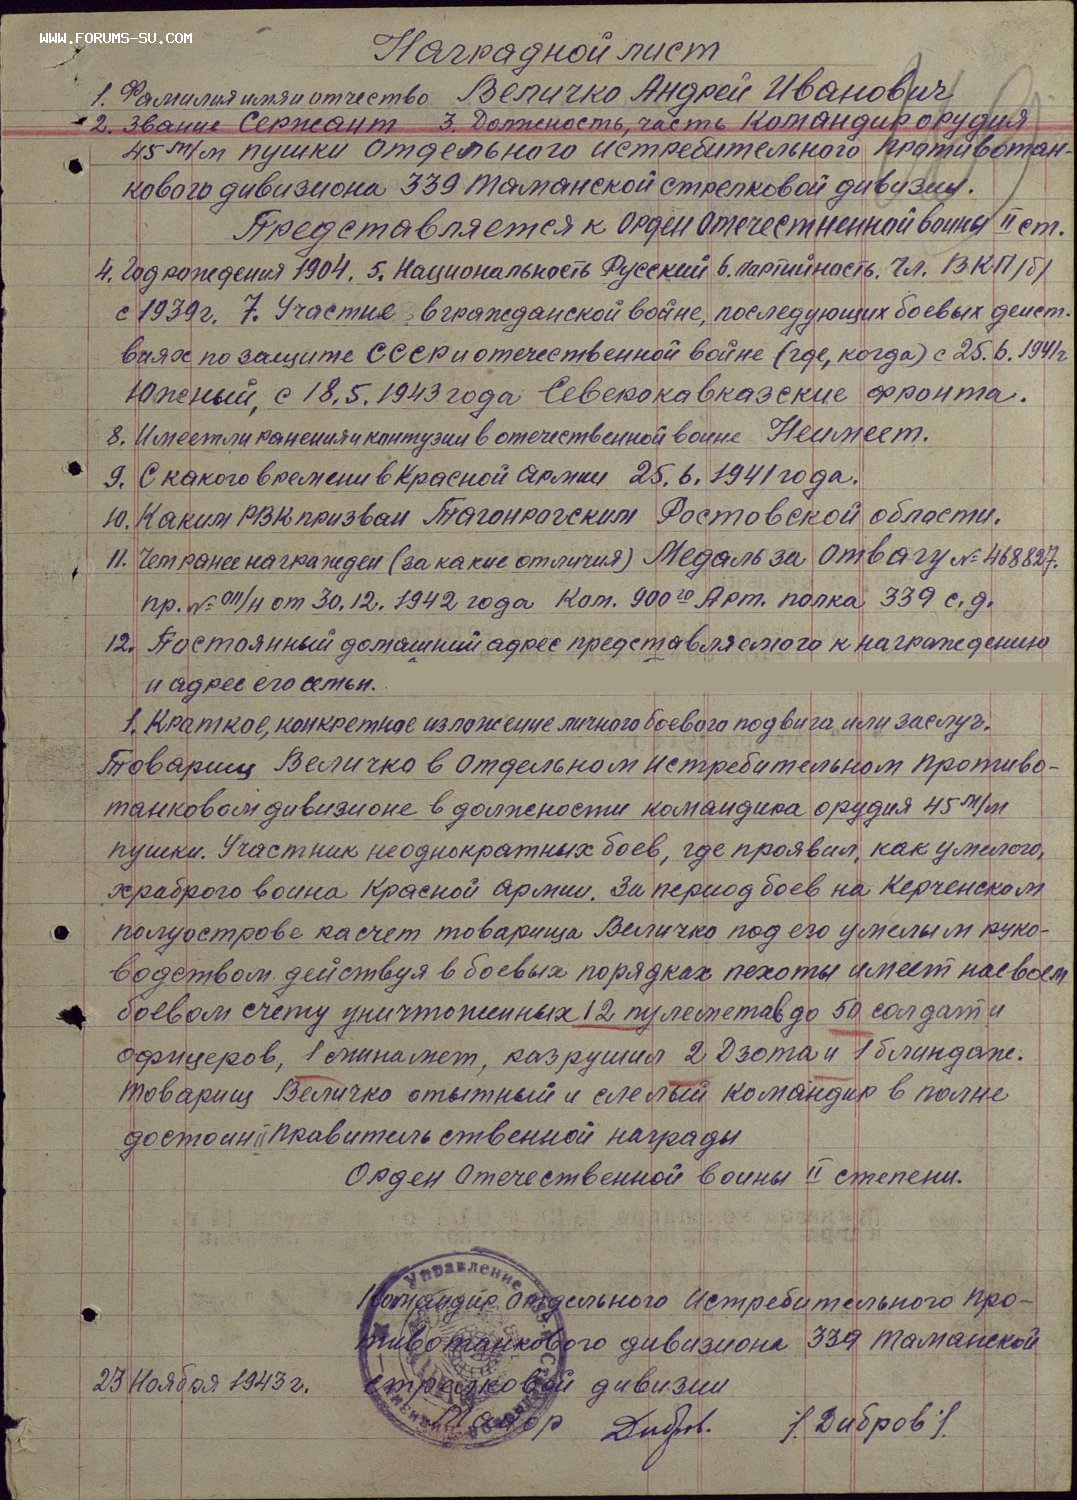 WWW.FORUMS-SU.COM
Наградной лист
1. Фамилия имя и отчество Величко Андрей Иванович
2. Звание Сержант 3. Должность, часть Командир орудия
45 м/м пушки Отдельного истребительного противотан-
кового дивизиона 339 Таманской стрелковой дивизии.
Представляется к Орден Отечественной воины II ст.
4. Год рождения 1904. 5. Национальность Русский 6. партийность. Чл. ВКП/б/
с 1939г. 7. Участие в гражданской войне, последующих боевых дейст-
виях по защите СССР и отечественной войне (где, когда) с 25.6.1941г
Южный, с 18.5.1943 года Северокавказские фронта.
8. Имеет ли ранения и контузии в отечественной воине Неимеет.
9. С какого времени в Красной армии 25.6.1941 года.
10. Каким РВК призван Таганрогским Ростовской области.
11. Чем ранее награжден (за какие отличия) Медаль за Отвагу № 468827.
пр. № 011/н от 30.12.1942 года Ком. 900го Арт. полка 339 с.д.
12. Постоянный домашний адрес представляемого к награждению
и адрес его семьи.
1. Краткое, конкретное изложение личного боевого подвига или заслуг.
Товарищ Величко в Отдельном истребительном противо-
танковом дивизионе в должности командира орудия 45 м/м
пушки. Участник неоднократных боев, где проявил, как умелого,
храброго воина Красной армии. За период боев на Керченском
полуострове расчет товарища Величко под его умелым руко-
водством действуя в боевых порядках пехоты имеет на своем
боевом счету уничтоженных 12 пулеметав до 50 солдат и
офицеров, 1 минамет, разрушил 2 Дзота и 1 блиндаж.
Товарищ Величко опытный и смелый командир в полне
достоин правительственной награды
Орден Отечественной воины II степени.
Управление
Командир Отдельного Истребительного Про-
тивотанкового дивизиона 339 Таманской
23 Ноября 1943г. стрелковой дивизии
Майор Дибров. /Дибров/